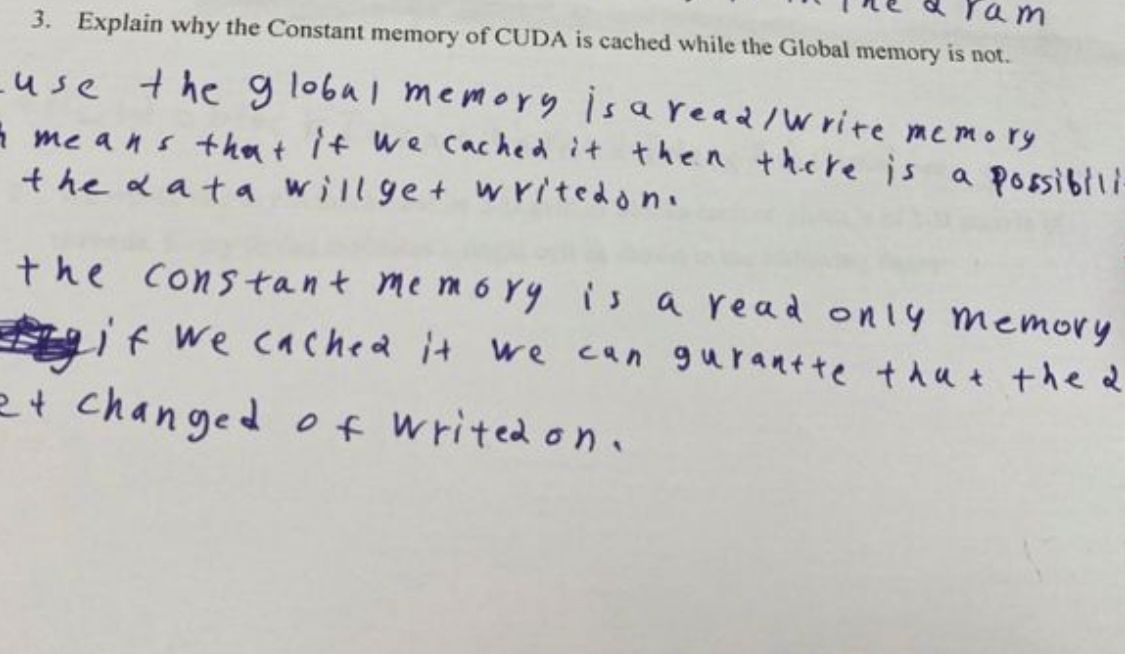 The dram
3. Explain why the Constant memory of CUDA is cached while the Global memory is not.
use the global memory is a read/write memory
means that if we cached it then there is a possibili
the data will get writed on.
the constant memory is a read only memory
if we cached it we can gurantte that the d
et changed of writed on.